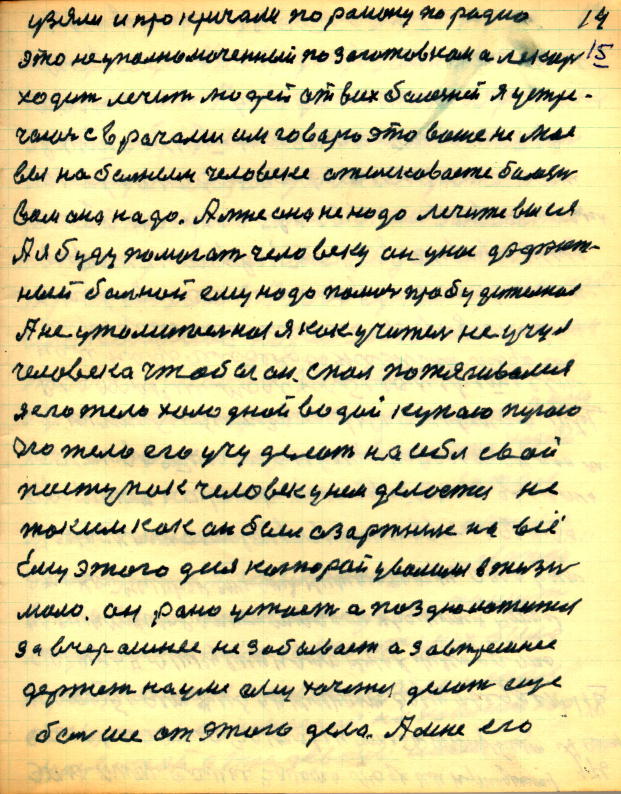 узяли и прокричали по району по радио 14
это не уполномоченный по заготовкам а лекар 15
ходит лечит людей от всих болезней я устре-
чался с врачами им говорю это ваше не мое
вы на больным человеке отыскиваете болезн
вам она надо. А мне она не надо лечите вы ся
А я буду помогат человеку он у нас
ный больной ему надо помоч пробуждения
А не утомителная я как учител не учу
человека чтобы он спал потягивался
я его тело холодной водой купаю пугаю
его тело его учу делат на себя свой
поступок человек у нем делостя не
таким как он был озартник на всё
Ёму этого дела который увалили в жизн
мало. он рано устает а поздно ложится
за вчерашнее не забывает а завтрешнее
держит на уми ему хочется делат еще
болше от этого дела. А мне его